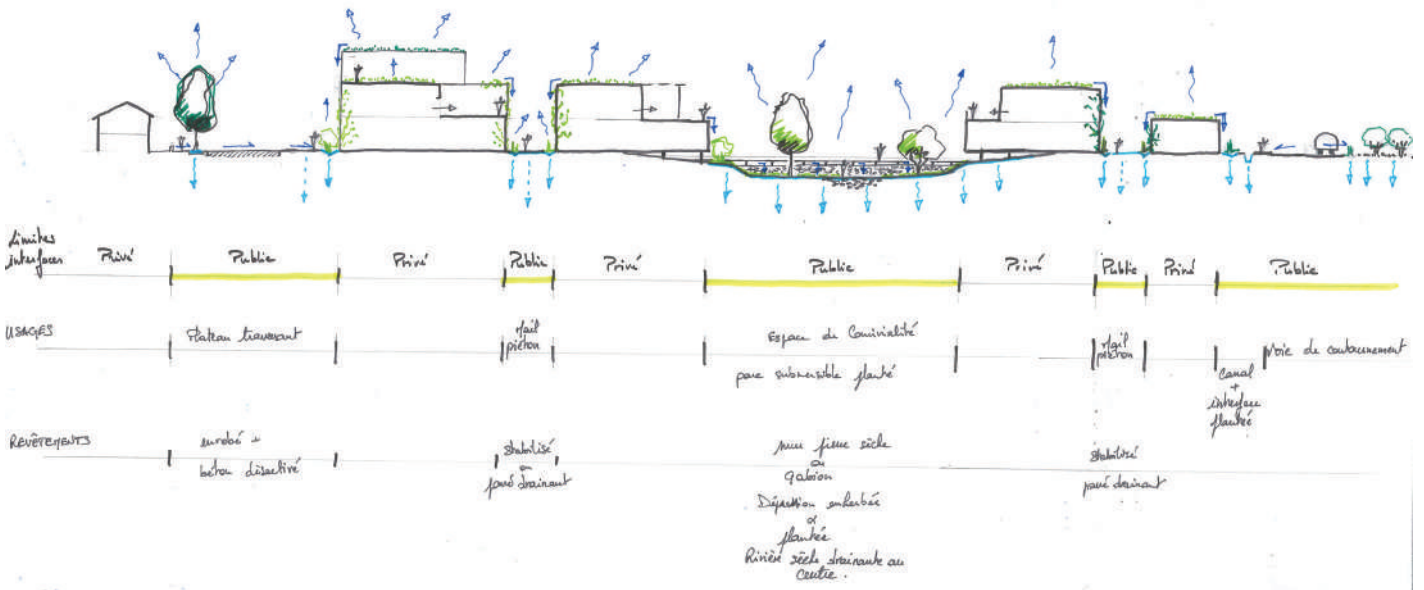 Limites
interfaces
Privé Public Privé Public Privé Public Privé Public Privé Public
USAGES
Plateau traversant
Mail
piéton
Espace de Convivialité
parc submersible planté
Mail
piéton
Canal
+
interface
plantée
Voie de contournement
REVÊTEMENTS
enrobé +
béton désactivé
stabilisé
ou
pavé drainant
mur pierre sèche
ou
Gabion
Dépression enherbée
&
plantée
Rivière sèche drainante au
Centre.
stabilisé
pavé drainant